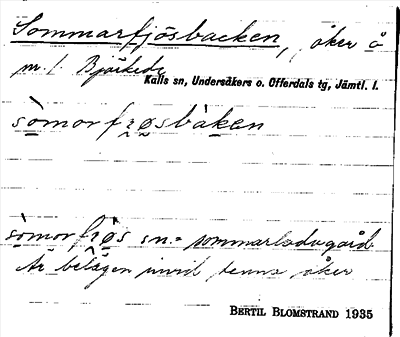 Sommarfjösbacken, åker å
m. l. Björkede
Kalls sn, Undersåkers o. Offerdals tg, Jämtl. l.
sòmorfjøsbàken
sòmorfjø̀s sn. = sommarladugård
Är belägen invid denna åker
BERTIL BLOMSTRAND 1935